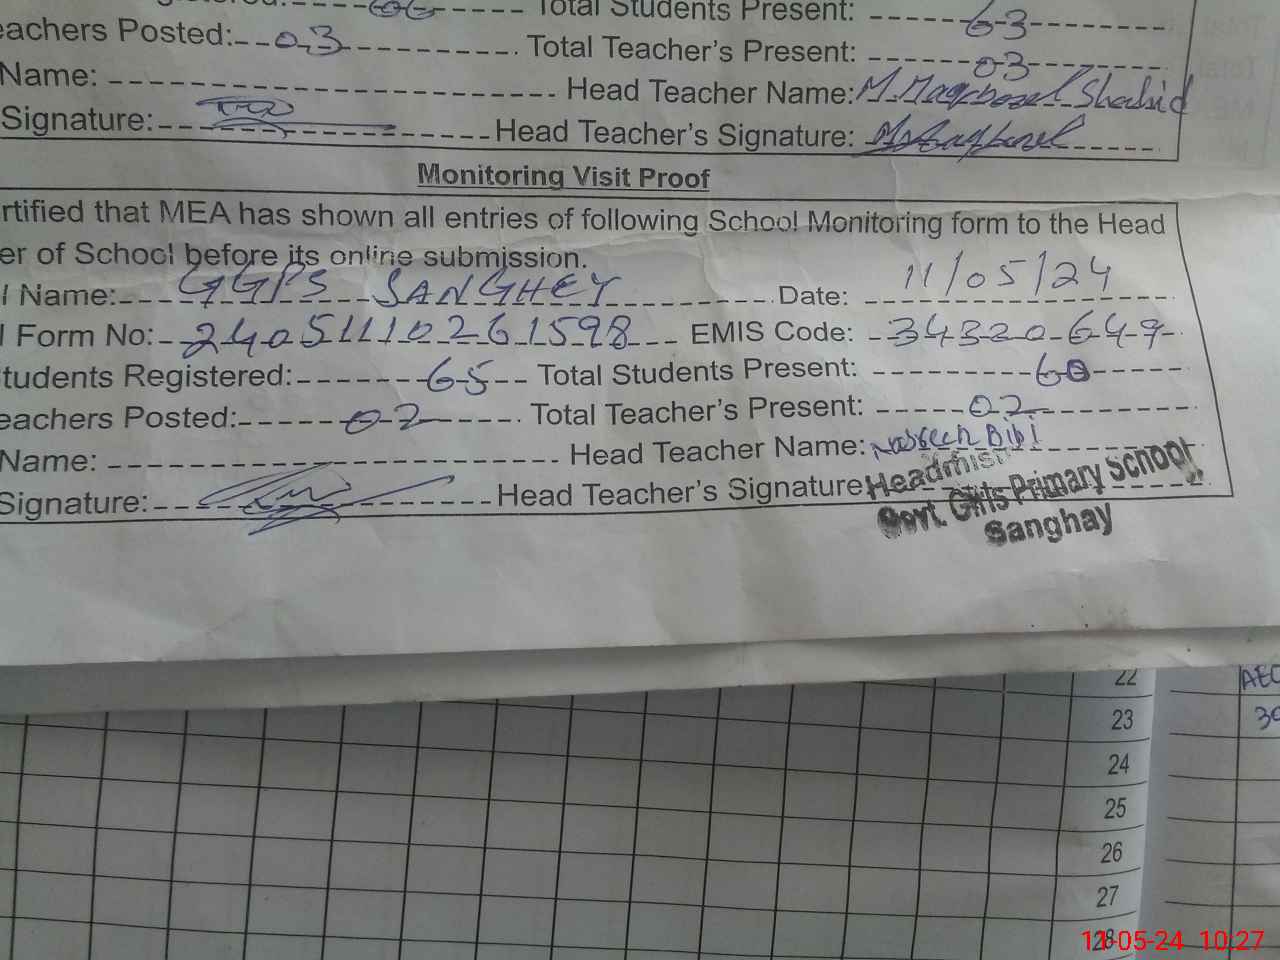 Total Students Present: 63
eachers Posted: 03 Total Teacher's Present: 03
Name: Head Teacher Name: M. Maqbool Shahid
Signature: Head Teacher's Signature:
Monitoring Visit Proof
rtified that MEA has shown all entries of following School Monitoring form to the Head
er of School before its online submission.
l Name: GGPS SANGHEY Date: 11/05/24
l Form No: 24051110261598 EMIS Code: 34320649
tudents Registered: 65 Total Students Present: 60
eachers Posted: 02 Total Teacher's Present: 02
Name: Head Teacher Name: Nasreen Bibi
Signature: Head Teacher's Signature:
Headmis
Govt. Girls Primary School
Sanghay
22
23
24
25
26
27
28
11-05-24 10:27